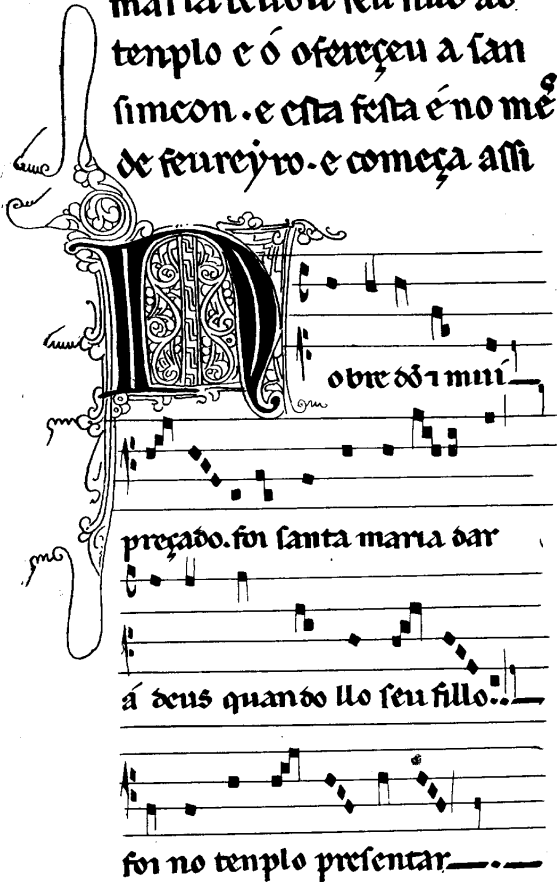 maria leuou seu fillo ao
tenplo e o ófereçeu a san
simeon. e esta festa é no mes
de feureyro. e começa assi
Nobre dõ ⁊ mui
preçado. foi santa maria dar
á deus quando llo seu fillo.
foi no tenplo presentar